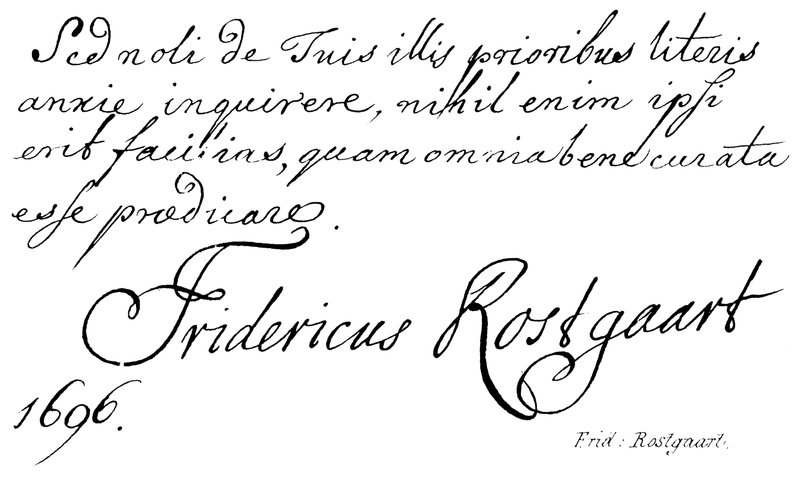 Sed noli de Tuis illis prioribus literis
anxie inquirere, nihil enim ipsi
erit facilius, quam omnia bene curata
esse prædicare.
Fridericus Rostgaart
1696.
Frid: Rostgaart.